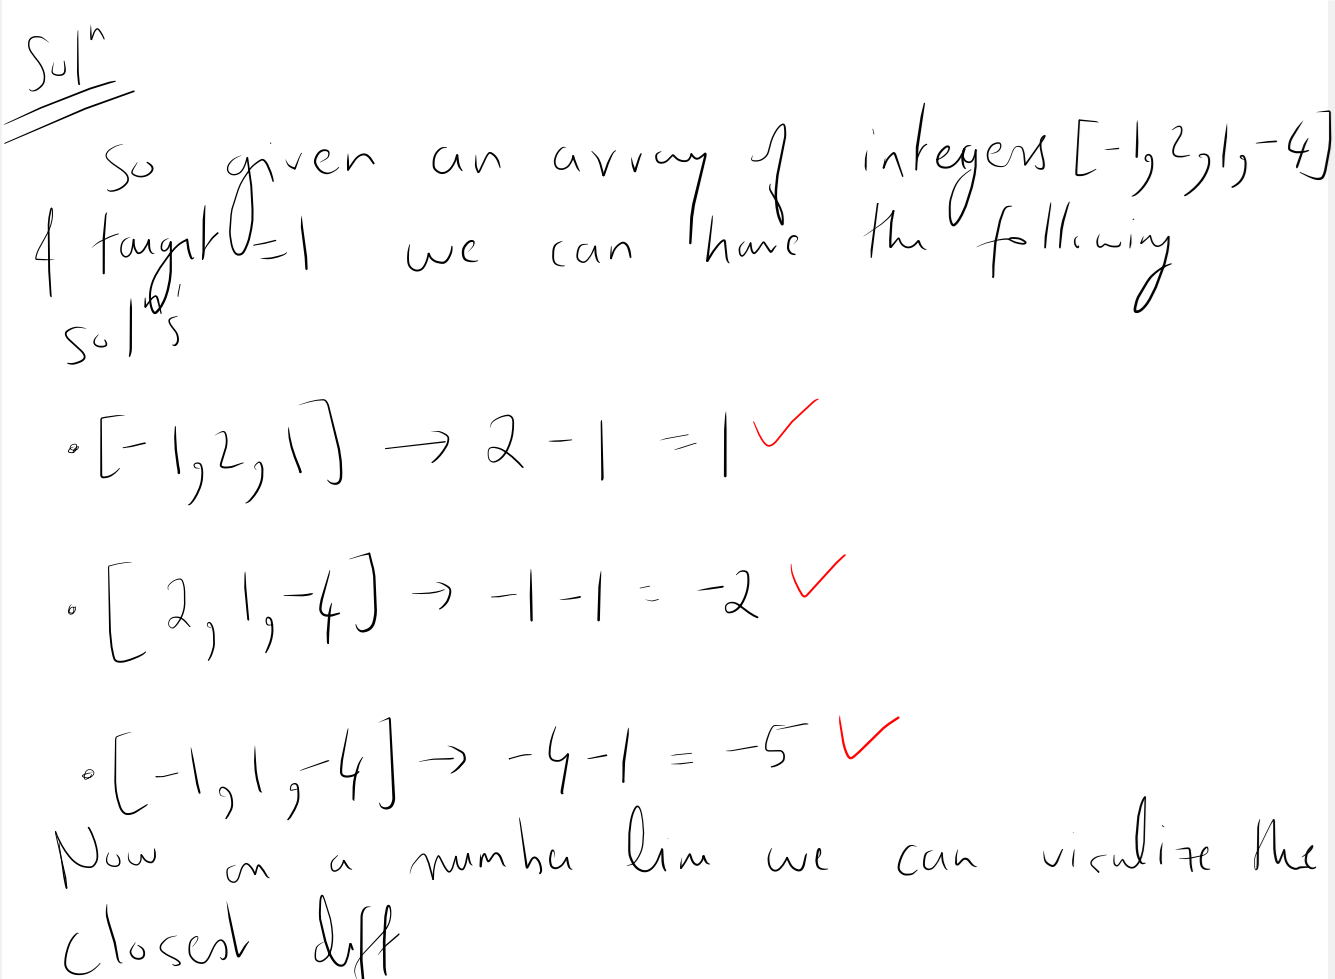 Solⁿ
So given an array of integers [-1,2,1,-4]
& target=1 we can have the following
solⁿs'
• [-1,2,1] → 2-1 =1 ✓
• [2,1,-4] → -1-1 = -2 ✓
• [-1,1,-4] → -4-1 = -5 ✓
Now on a number line we can visulize the
closest diff